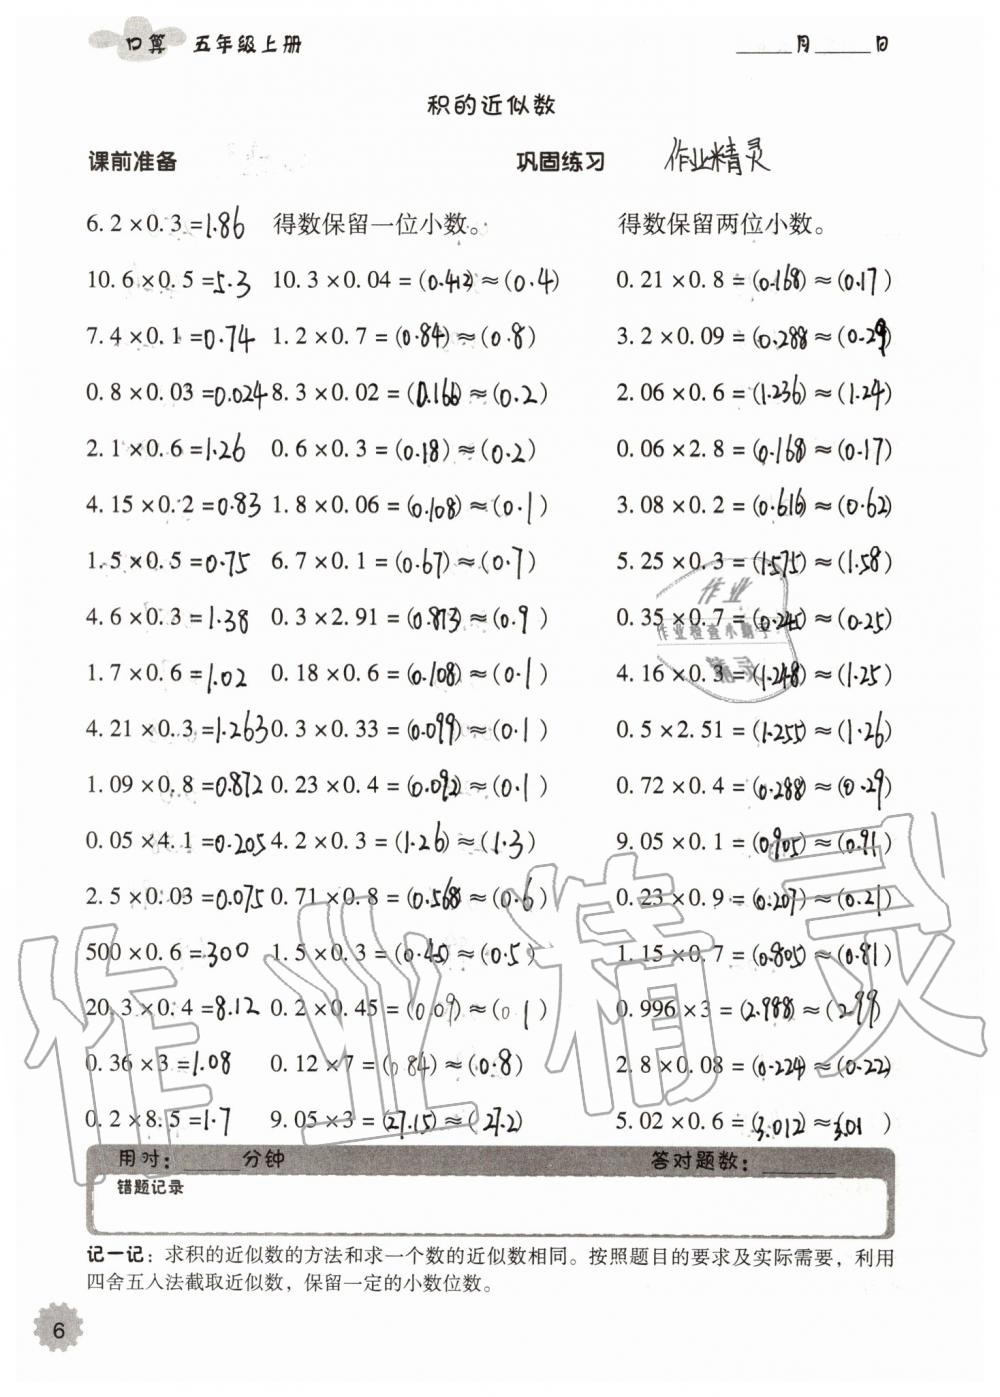 口算 五年级上册 ______月______日
积的近似数
课前准备 巩固练习 作业精灵
6.2×0.3=1.86 得数保留一位小数。 得数保留两位小数。
10.6×0.5=5.3 10.3×0.04=(0.412)≈(0.4) 0.21×0.8=(0.168)≈(0.17)
7.4×0.1=0.74 1.2×0.7=(0.84)≈(0.8) 3.2×0.09=(0.288)≈(0.29)
0.8×0.03=0.024 8.3×0.02=(0.166)≈(0.2) 2.06×0.6=(1.236)≈(1.24)
2.1×0.6=1.26 0.6×0.3=(0.18)≈(0.2) 0.06×2.8=(0.168)≈(0.17)
4.15×0.2=0.83 1.8×0.06=(0.108)≈(0.1) 3.08×0.2=(0.616)≈(0.62)
1.5×0.5=0.75 6.7×0.1=(0.67)≈(0.7) 5.25×0.3=(1.575)≈(1.58)
4.6×0.3=1.38 0.3×2.91=(0.873)≈(0.9) 0.35×0.7=(0.245)≈(0.25)
1.7×0.6=1.02 0.18×0.6=(0.108)≈(0.1) 4.16×0.3=(1.248)≈(1.25)
4.21×0.3=1.263 0.3×0.33=(0.099)≈(0.1) 0.5×2.51=(1.255)≈(1.26)
1.09×0.8=0.872 0.23×0.4=(0.092)≈(0.1) 0.72×0.4=(0.288)≈(0.29)
0.05×4.1=0.205 4.2×0.3=(1.26)≈(1.3) 9.05×0.1=(0.905)≈(0.91)
2.5×0.03=0.075 0.71×0.8=(0.568)≈(0.6) 0.23×0.9=(0.207)≈(0.21)
500×0.6=300 1.5×0.3=(0.45)≈(0.5) 1.15×0.7=(0.805)≈(0.81)
20.3×0.4=8.12 0.2×0.45=(0.09)≈(0 1) 0.996×3=(2.988)≈(2.99)
0.36×3=1.08 0.12×7=(0 84)≈(0.8) 2.8×0.08=(0.224)≈(0.22)
0.2×8.5=1.7 9.05×3=(27.15)≈(27.2) 5.02×0.6=(3.012)≈3.01 )
用时：______分钟 答对题数：______
错题记录
记一记：求积的近似数的方法和求一个数的近似数相同。按照题目的要求及实际需要，利用
四舍五入法截取近似数，保留一定的小数位数。
6
作业
作业检查小助手
精灵
作业精灵